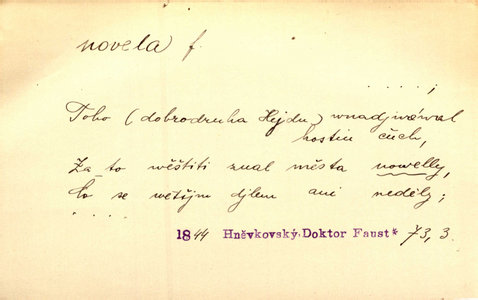 novela f.
. . . . ;
Toho (dobrodruha Hejdu) wnadjwáwal
hostin čich,
Za to wěštiti znal města nowelly,
Co se wětšjm djlem ani nedělj;
. . . .
1844 Hněvkovský·Doktor Faust* 73, 3.